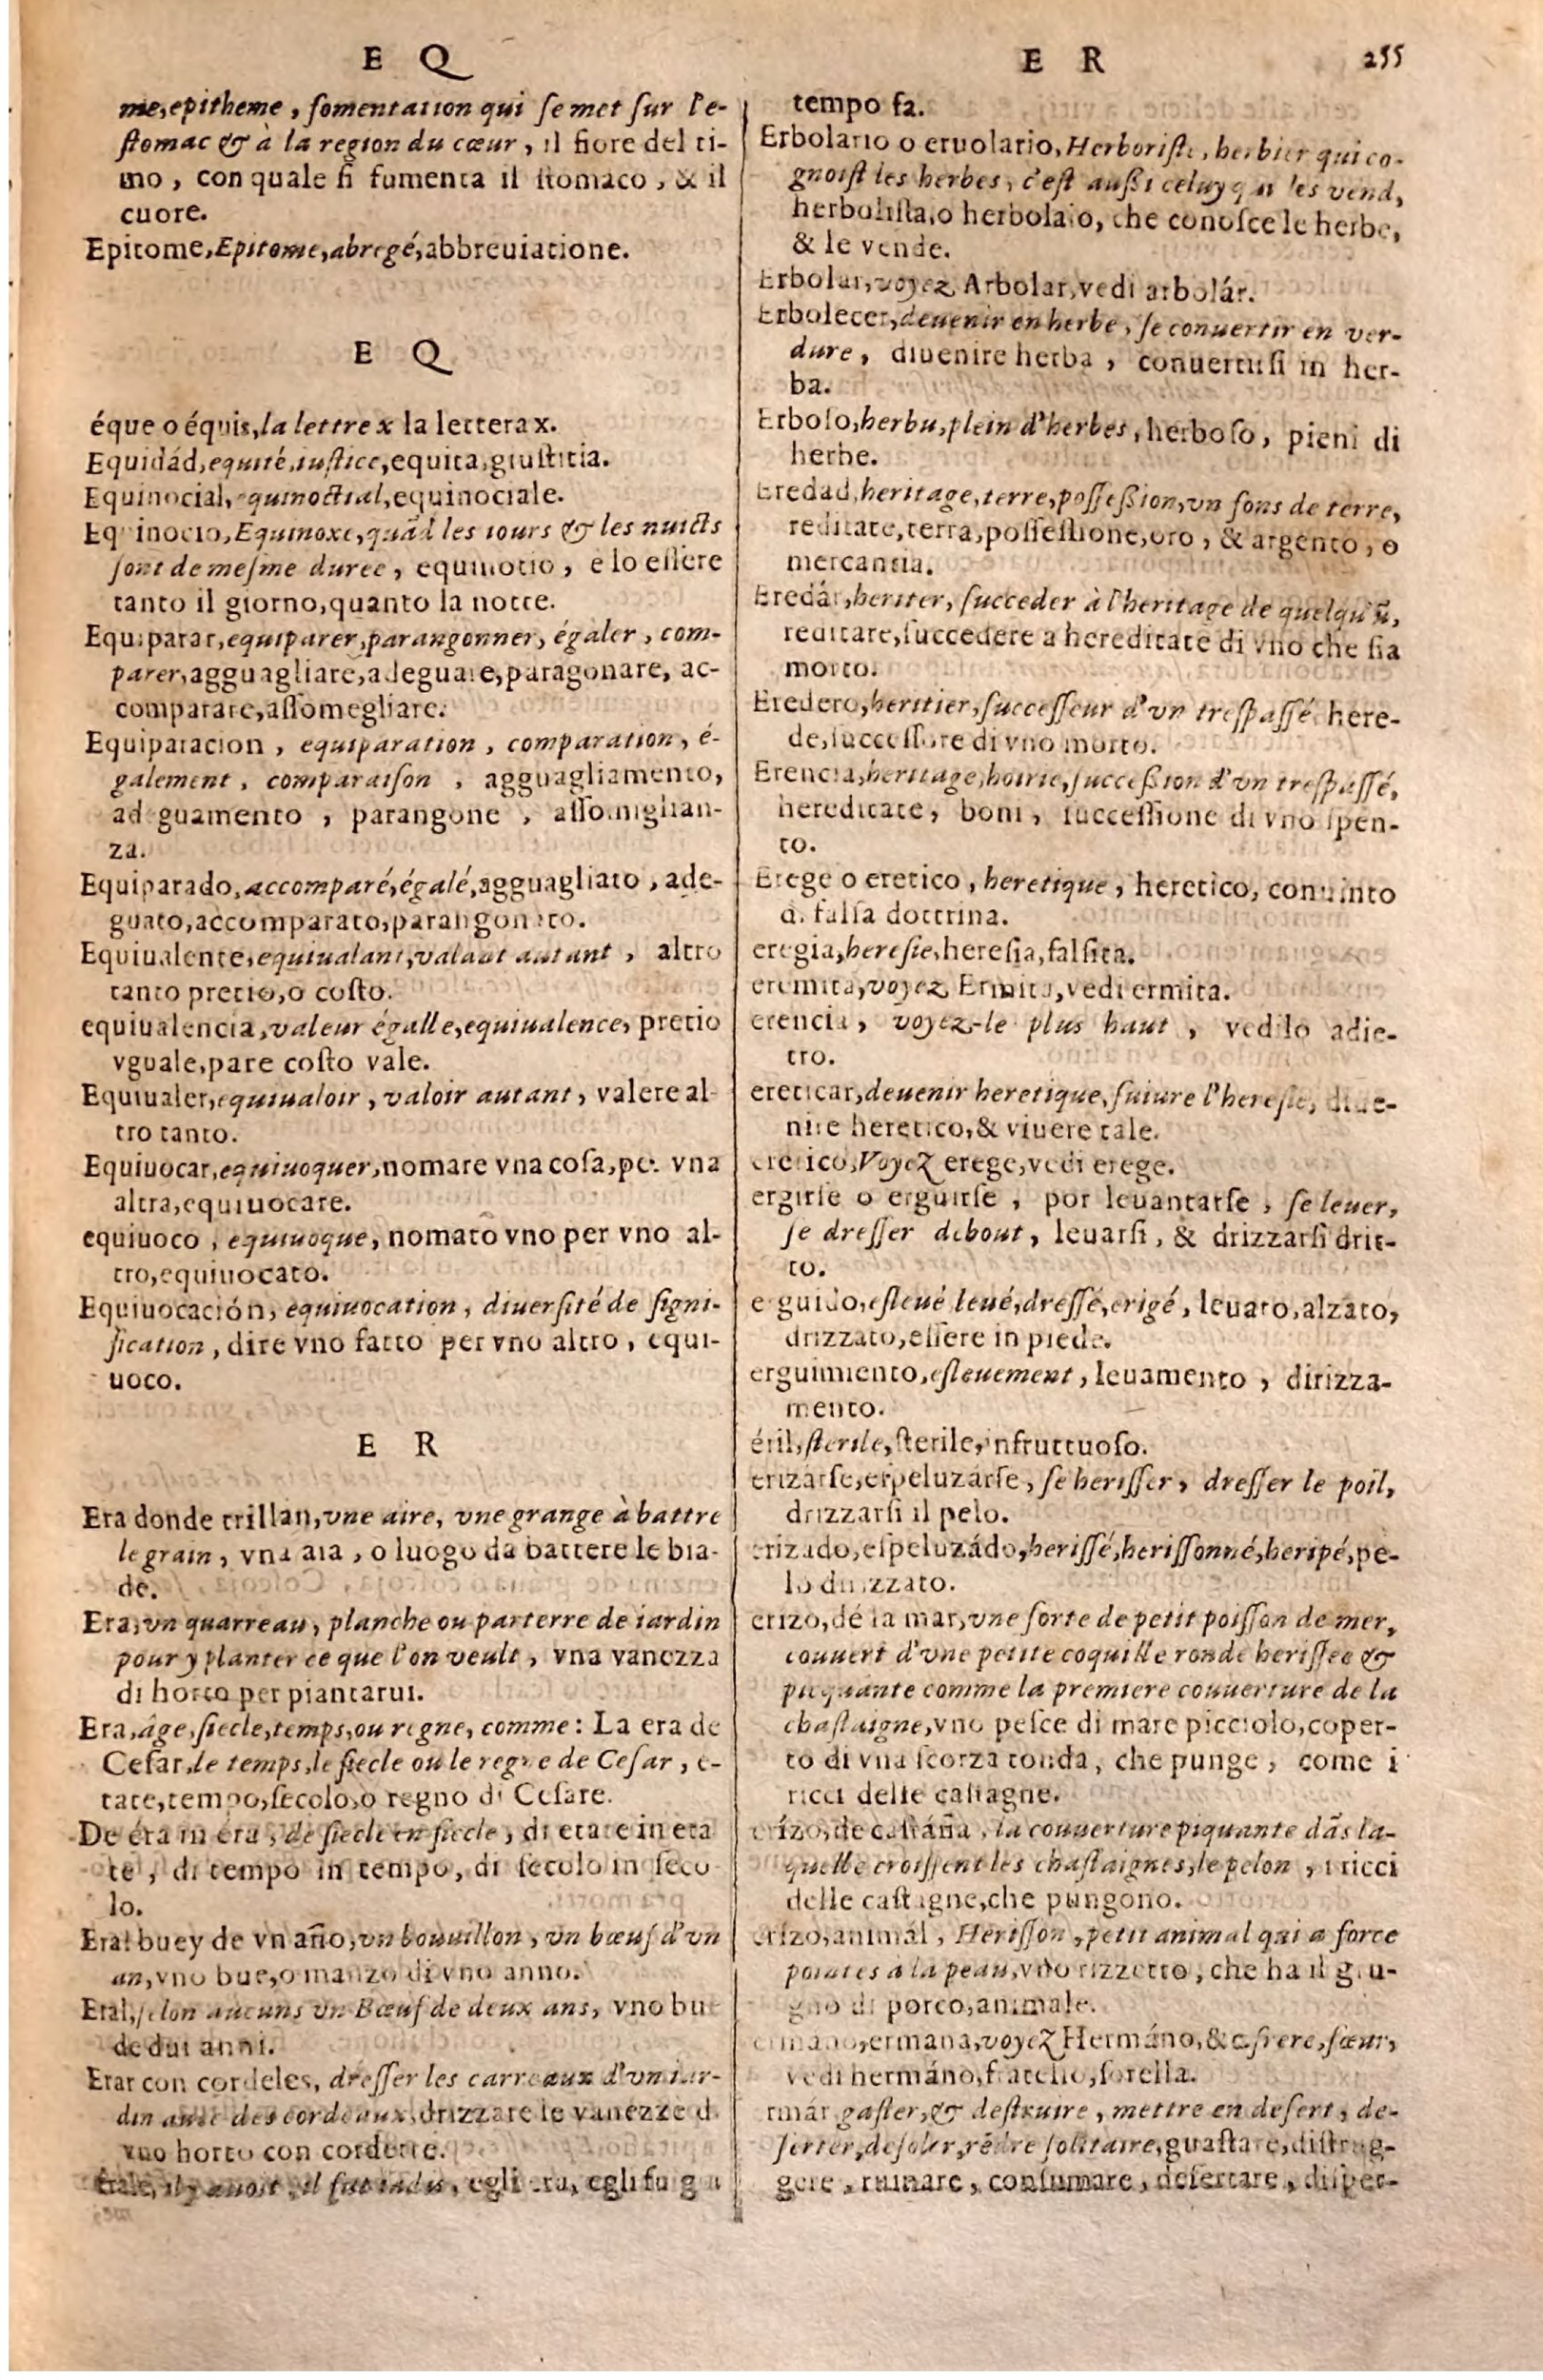 E Q
me, epitheme, fomentation qui ſe met ſur l'e-
ſtomac & à la region du cœur, il fiore del ti-
mo, con quale ſi fumenta il ſtomaco, & il
cuore.
Epitome, Epitome, abregé, abbreuiatione.
E Q
éque o équis, la lettre x la lettera x.
Equidád, equité, iuſtice, equita, giuſtitia.
Equinocial, equinoctial, equinociale.
Equinocio, Equinoxe, quãd les iours & les nuicts
ſont de meſme duree, equinotio, e lo eſſere
tanto il giorno, quanto la notte.
Equiparar, equiparer, parangonner, égaler, com-
parer, agguagliare, adeguare, paragonare, ac-
comparare, aſſomegliare.
Equiparacion, equiparation, comparation, é-
galement, comparaiſon, agguagliamento,
adeguamento, parangone, aſſomiglian-
za.
Equiparado, accomparé, égalé, agguagliato, ade-
guato, accomparato, parangonato.
Equiualente, equiualant, valant autant, altro
tanto pretio, o coſto.
equiualencia, valeur égalle, equiualence, pretio
vguale, pare coſto vale.
Equiualer, equiualoir, valoir autant, valere al-
tro tanto.
Equiuocar, equiuoquer, nomare vna coſa, per vna
altra, equiuocare.
equiuoco, equiuoque, nomato vno per vno al-
tro, equiuocato.
Equiuocación, equiuocation, diuerſité de ſigni-
fication, dire vno fatto per vno altro, equi-
uoco.
E R
Era donde trillan, vne aire, vne grange à battre
le grain, vna aia, o luogo da battere le bia-
de.
Era, vn quarreau, planche ou parterre de iardin
pour y planter ce que l'on veult, vna vanezza
di horto per piantarui.
Era, âge, ſiecle, temps, ou regne, comme: La era de
Ceſar, le temps, le ſiecle ou le regne de Ceſar, e-
tate, tempo, ſecolo, o regno di Ceſare.
De éra in éra, de ſiecle en ſiecle, di etate in eta
te, di tempo in tempo, di ſecolo in ſeco
lo.
Eral buey de vn año, vn bouuillon, vn bœuf d'vn
an, vno bue, o manzo di vno anno.
Eral, ſelon aucuns vn Bœuf de deux ans, vno bue
de dui anni.
Erar con cordeles, dreſſer les carreaux d'vn iar-
din auec des cordeaux, drizzare le vanezze d
vno horto con cordette.
il y auoit, il fut iadis, egli era, egli fu gia
E R 255
tempo fa.
Erbolario o eruolario, Herboriſte, herbier qui co-
gnoiſt les herbes, c'eſt auſſi celuy qui les vend,
herboliſta, o herbolaio, che conoſce le herbe,
& le vende.
Erbolar, voyez Arbolar, vedi arbolár.
Erbolecer, deuenir en herbe, ſe conuertir en ver-
dure, diuenire herba, conuertirſi in her-
ba.
Erboſo, herbu, plein d'herbes, herboſo, pieni di
herbe.
Eredad, heritage, terre, poſſeſſion, vn fons de terre,
reditate, terra, poſſeſſione, oro, & argento, o
mercantia.
Eredár, heriter, ſucceder à l'heritage de quelqu'ũ,
reditare, ſuccedere a hereditate di vno che ſia
morto.
Eredero, heritier, ſucceſſeur d'vn treſpaſſé, here-
de, ſucceſſore di vno morto.
Erencia, heritage, hoirie, ſucceſſion d'vn treſpaſſé,
hereditate, boni, ſucceſſione di vno ſpen-
to.
Erege o eretico, heretique, heretico, conuinto
di falſa dottrina.
eregia, hereſie, hereſia, falſita.
eremita, voyez Ermita, vedi ermita.
erencia, voyez-le plus haut, vedilo adie-
tro.
ereticar, deuenir heretique, ſuiure l'hereſie, diue-
nire heretico, & viuere tale.
eretico, Voyez erege, vedi erege.
ergirſe o erguirſe, por leuantarſe, ſe leuer,
ſe dreſſer debout, leuarſi, & drizzarſi drit-
to.
erguido, eſleué, leué, dreſſé, erigé, leuato, alzato,
drizzato, eſſere in piede.
erguimiento, eſleuement, leuamento, dirizza-
mento.
éril, ſterile, ſterile, infruttuoſo.
erizarſe, eſpeluzarſe, ſe heriſſer, dreſſer le poil,
drizzarſi il pelo.
erizado, eſpeluzádo, heriſſé, heriſſonné, heripé, pe-
lo dirizzato.
erizo, dé la mar, vne ſorte de petit poiſſon de mer,
couuert d'vne petite coquille ronde heriſſee &
picquante comme la premiere couuerture de la
chaſtaigne, vno peſce di mare picciolo, coper-
to di vna ſcorza tonda, che punge, come i
ricci delle caſtagne.
erízo, de caſtáña, la couuerture piquante dãs la-
quelle croiſſent les chaſtaignes, le pelon, i ricci
delle caſtagne, che pungono.
erízo, animál, Heriſſon, petit animal qui a force
pointes a la peau, vno rizzetto, che ha il gru-
gno di porco, animale.
ermano, ermana, voyez Hermáno, &c. frere, ſœur,
vedi hermáno, fratello, ſorella.
rmár gaſter, & deſtruire, mettre en deſert, de-
ſerter, deſoler, rẽdre ſolitaire, guaſtare, diſtrug-
gere, ruinare, conſumare, deſertare, diſper-